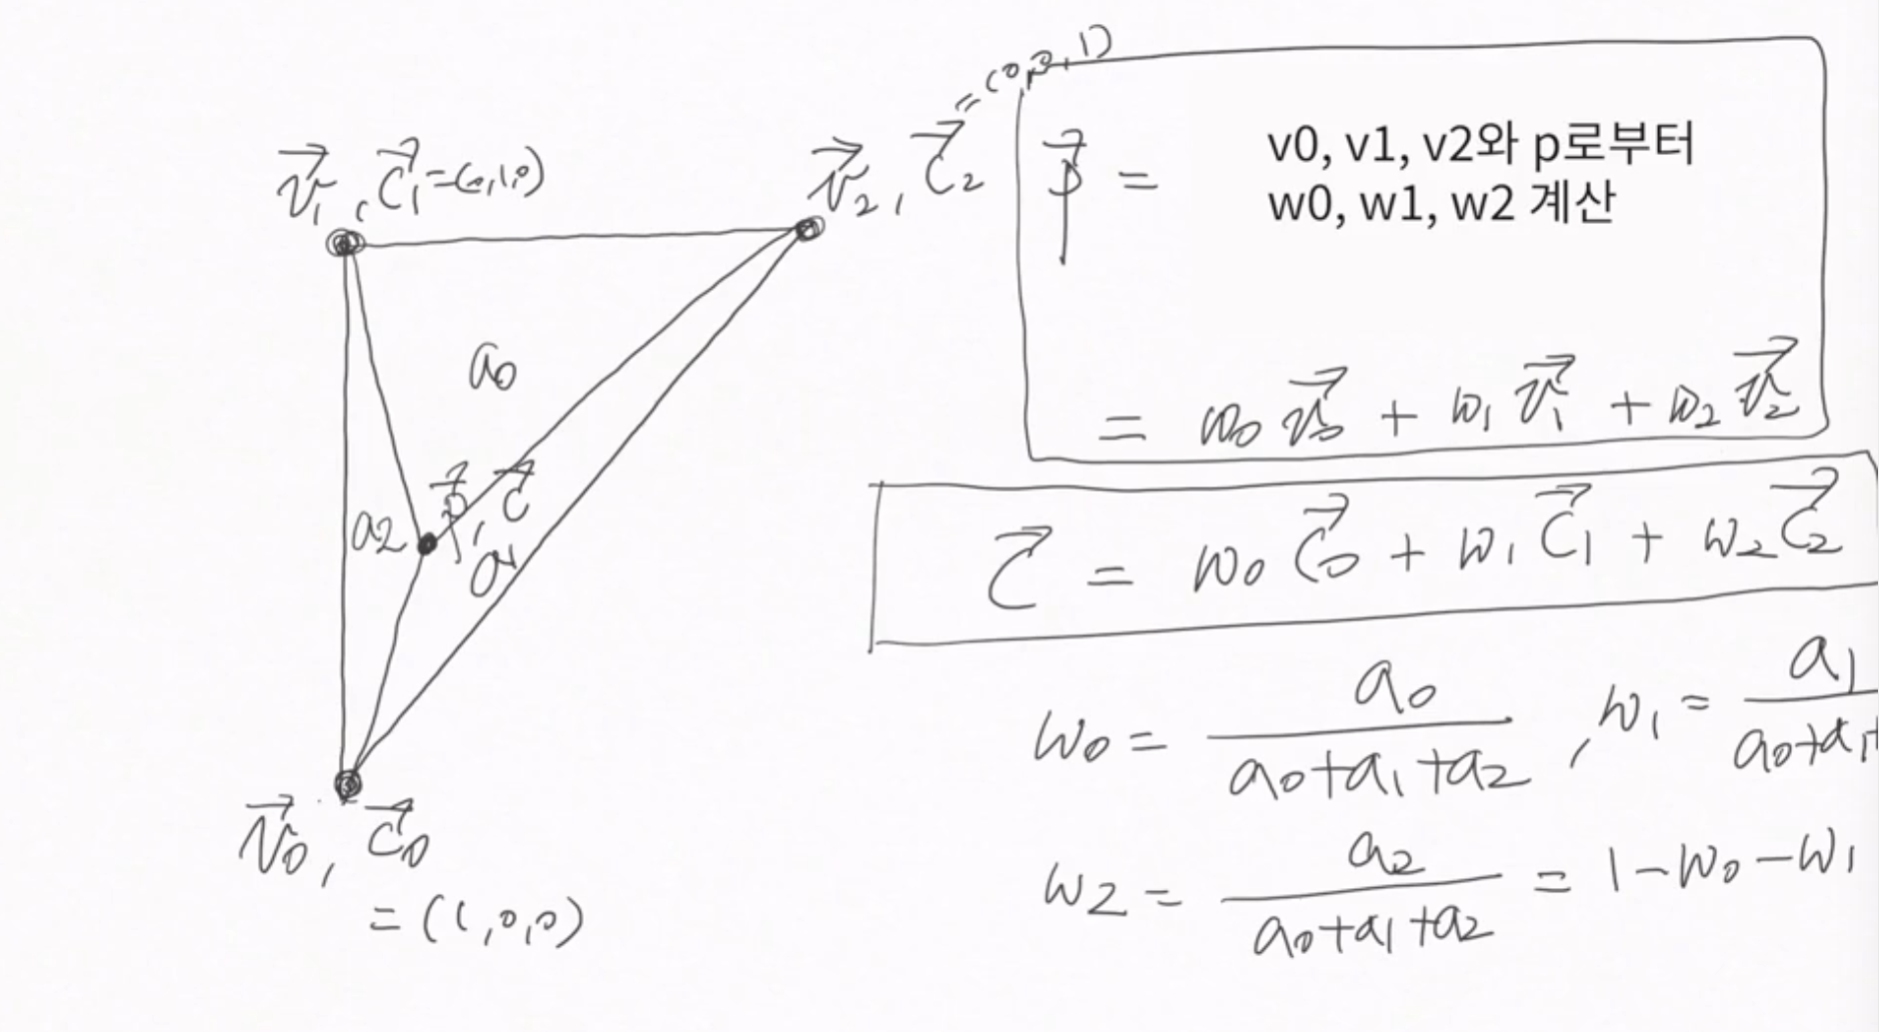 v⃗₁, c⃗₁ = (0,1,0)
v⃗₂, c⃗₂ = (0,0,1)
a₀
a₂
p⃗, c⃗
a₁
v⃗₀, c⃗₀
= (1,0,0)
p⃗ =
v0, v1, v2와 p로부터
w0, w1, w2 계산
= w₀v⃗₀ + w₁v⃗₁ + w₂v⃗₂
c⃗ = w₀c⃗₀ + w₁c⃗₁ + w₂c⃗₂
w₀ = a₀/(a₀+a₁+a₂), w₁ = a₁/(a₀+a₁+
w₂ = a₂/(a₀+a₁+a₂) = 1-w₀-w₁